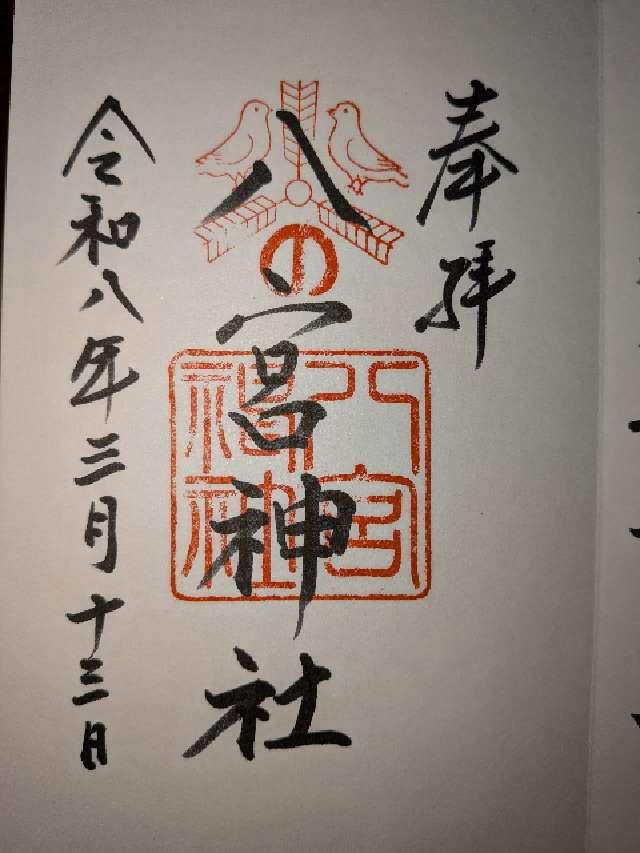 奉拝
八の宮神社
八宮神社
令和八年三月十三日